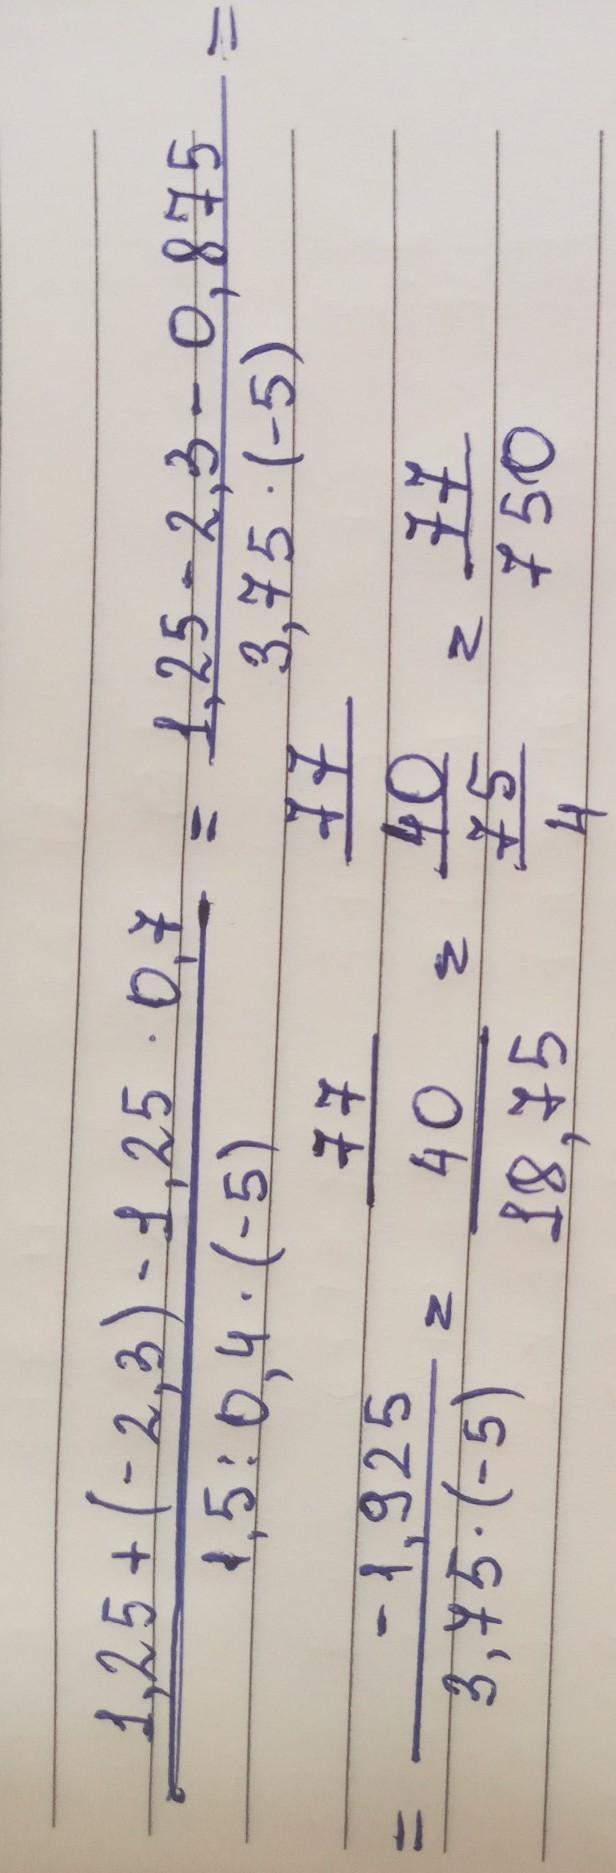 1,25 + (-2,3) - 1,25 · 0,7 / 1,5 : 0,4 · (-5) = 1,25 - 2,3 - 0,875 / 3,75 · (-5) =
= -1,925 / 3,75 · (-5) = 77 / 40 / 18,75 = 77 / 40 / 75 / 4 = 77 / 750